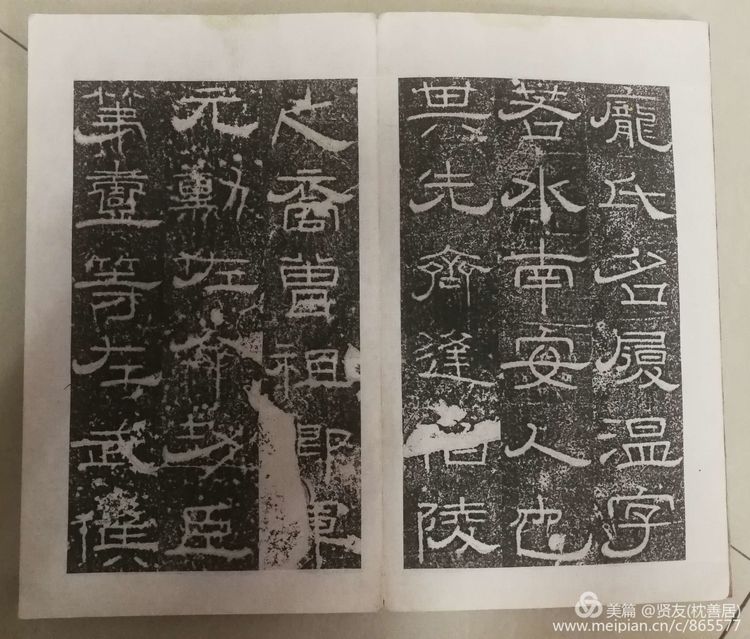 龐氏名履温字
若水南安人也
其先齊逢伯陵
之裔曾祖卿惲
元勳佐命功臣
第壹等左武候
美篇 @贤友(枕善居)
www.meipian.cn/c/865577